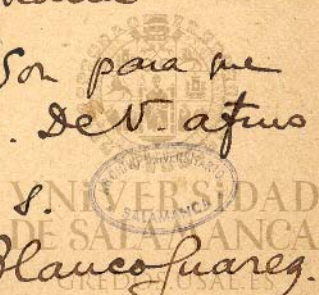 Son para que
. De V. afmo
s.
Blanco Juarez.
ARCHIVO UNIVERSITARIO
SALAMANCA
VNiVERSiDAD
DE SALAMANCA
GREDOS.USAL.ES